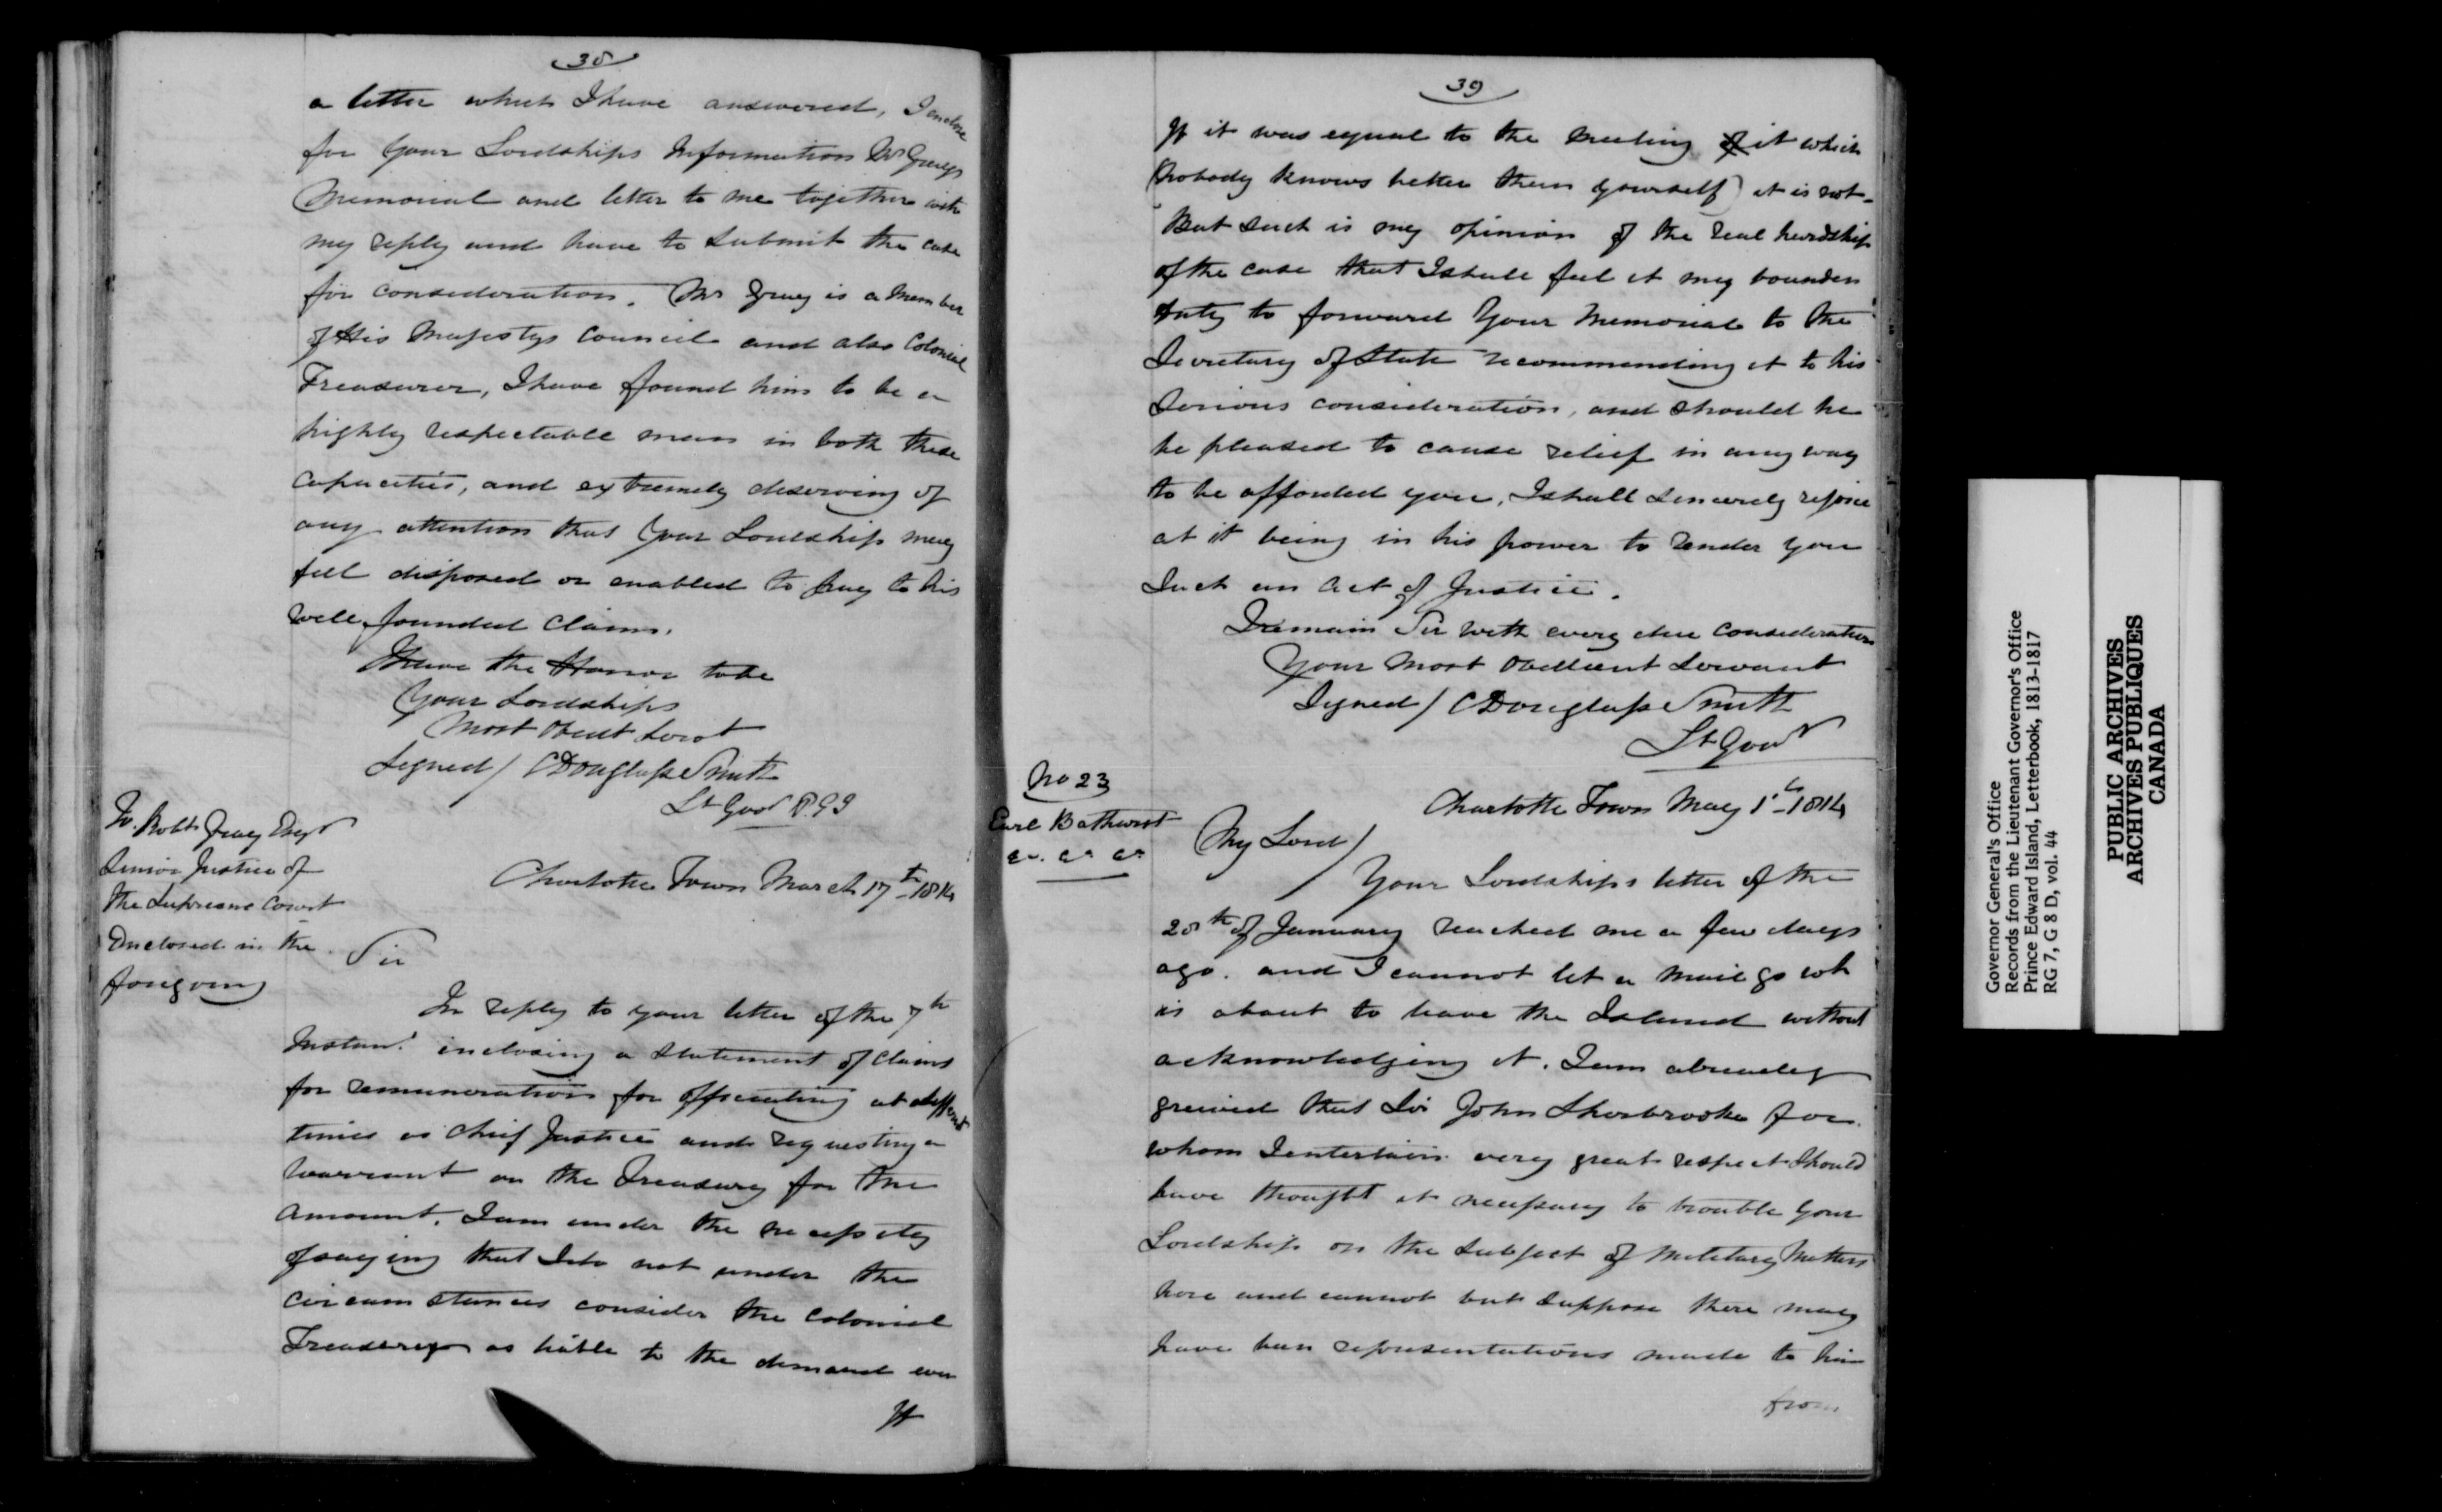 38
a letter which I have answered, I enclose
for Your Lordships Information Mr Grays
Memorial and letter to me together with
my reply and have to submit the case
for consideration. Mr Gray is a Member
of His Majestys Council and also Colonial
Treasurer, I have found him to be a
highly respectable man in both these
capacities, and extremely deserving of
any attention that Your Lordship may
feel disposed or enabled to pay to his
well founded claims.
I have the Honor to be
Your Lordships
Most Obedt Servt
Signed / C Douglass Smith
Lt Govr P.E.I
To. Robt Gray Esqr
Senior Justice of
the Supreme Court
Enclosed in the
foregoing
Charlotte Town March 17th 1814
Sir
In reply to your letter of the 7th
Instant inclosing a Statement of Claims
for remuneration for officiating at different
times as Chief Justice and requesting a
Warrant on the Treasury for the
Amount. I am under the necessity
of saying that I do not under the
circumstances consider the Colonial
Treasury as liable to the demand even
If
39
If it was equal to the meeting of it which
(nobody knows better than yourself) it is not.
But such is my opinion of the real hardship
of the case that I shall feel it my bounden
duty to forward Your Memorial to the
Secretary of State recommending it to his
Serious consideration, and should he
be pleased to cause relief in any way
to be afforded you, I shall sincerely rejoice
at it being in his power to render you
Such an Act of Justice.
I remain Sir with every due consideration
Your Most Obedient Servant
Signed / C Douglass Smith
Lt Govr
No 23
Earl Bathurst
&c. &c &c
Charlotte Town May 1st 1814
My Lord /
Your Lordships letter of the
28th of January reached me a few days
ago. and I cannot let a mail go wh
is about to leave the Island without
acknowledging it. I am already
greived that Sir John Sherbrooke for
whom I entertain very great respect should
have thought it necessary to trouble Your
Lordship on the Subject of Military Matters
here and cannot but suppose there may
have been representations made to him
from
Governor General's Office
Records from the Lieutenant Governor's Office
Prince Edward Island, Letterbook, 1813-1817
RG 7, G 8 D, vol. 44
PUBLIC ARCHIVES
ARCHIVES PUBLIQUES
CANADA